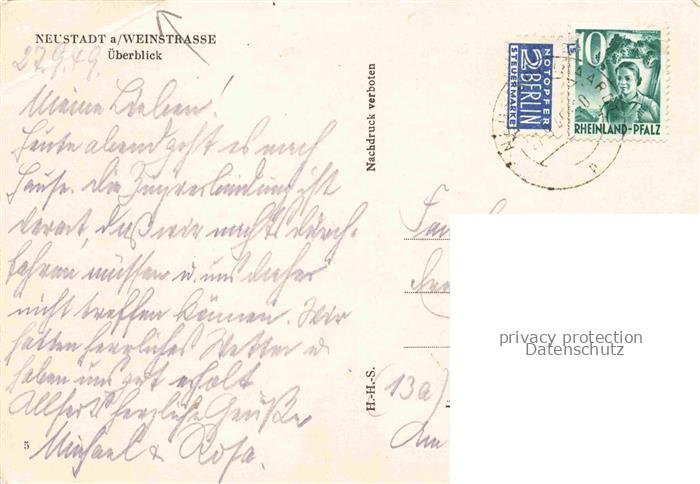 NEUSTADT a/WEINSTRASSE
Überblick
27.9.49.
Meine Lieben!
Heute abend geht es nach
Hause. Die Zugverbindung ist
derart, daß wir nachts durch-
fahren müssen u. uns daher
nicht treffen können. Wir
hatten herrliches Wetter u.
haben uns gut erholt
herzliche Grüße,
Michael & Rosa.
5
Nachdruck verboten
H.-H.-S.
NOTOPFER
2 BERLIN
STEUERMARKE
10
RHEINLAND-PFALZ
(13a)
Am
privacy protection
Datenschutz